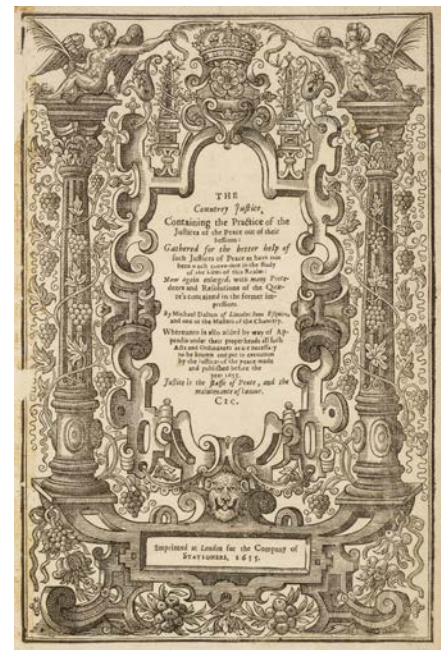 THE
Countrey Justice,
Containing the Practice of the
Justices of the Peace out of their
Sessions:
Gathered for the better help of
such Justices of Peace as have not
been much conversant in the study
of the Laws of this Realm:
Now again enlarged, with many Prece-
dents and Resolutions of the Quæ-
re's contained in the former im-
pressions.
By Michael Dalton of Lincolns Inn Esquire,
and one of the Masters of the Chancery.
Whereunto is also added by way of Ap-
pendix under their proper heads all such
Acts and Ordinances as are necessary
to be known and put in execution
by the Justices of the peace made
and published before the
year 1655.
Justice is the staffe of Peace, and the
maintenance of honour.
CIC.
Imprinted at London for the Company of
STATIONERS, 1655.